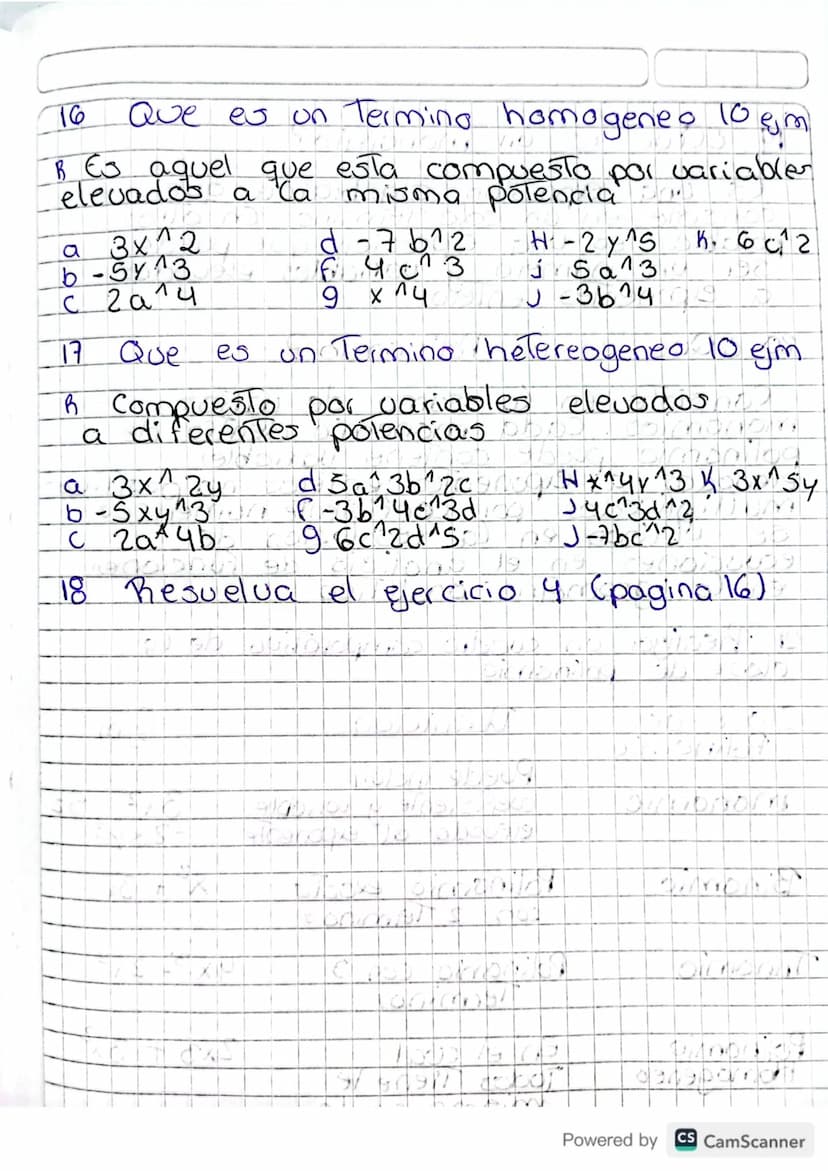 16 Que es un Termino homogeneo 10 ejm
R Es aquel que esta compuesto por variables
elevados a la misma potencia
a 3x^2 d -7b^2 H -2y^5 K. 6c^2
b -5y^3 f. 4c^3 i 5a^3
c 2a^4 g x^4 J -3b^4
17 Que es un Termino hetereogeneo 10 ejm
R Compuesto por variables elevados
a diferentes potencias
a 3x^2y d 5a^3b^2c H x^4y^3 K 3x^5y
b -5xy^3 f -3b^4c^3d J 4c^3d^2
c 2a^4b g 6c^2d^5 J -7bc^2
18 Resuelva el ejercicio 4 (pagina 16)
Powered by CS CamScanner